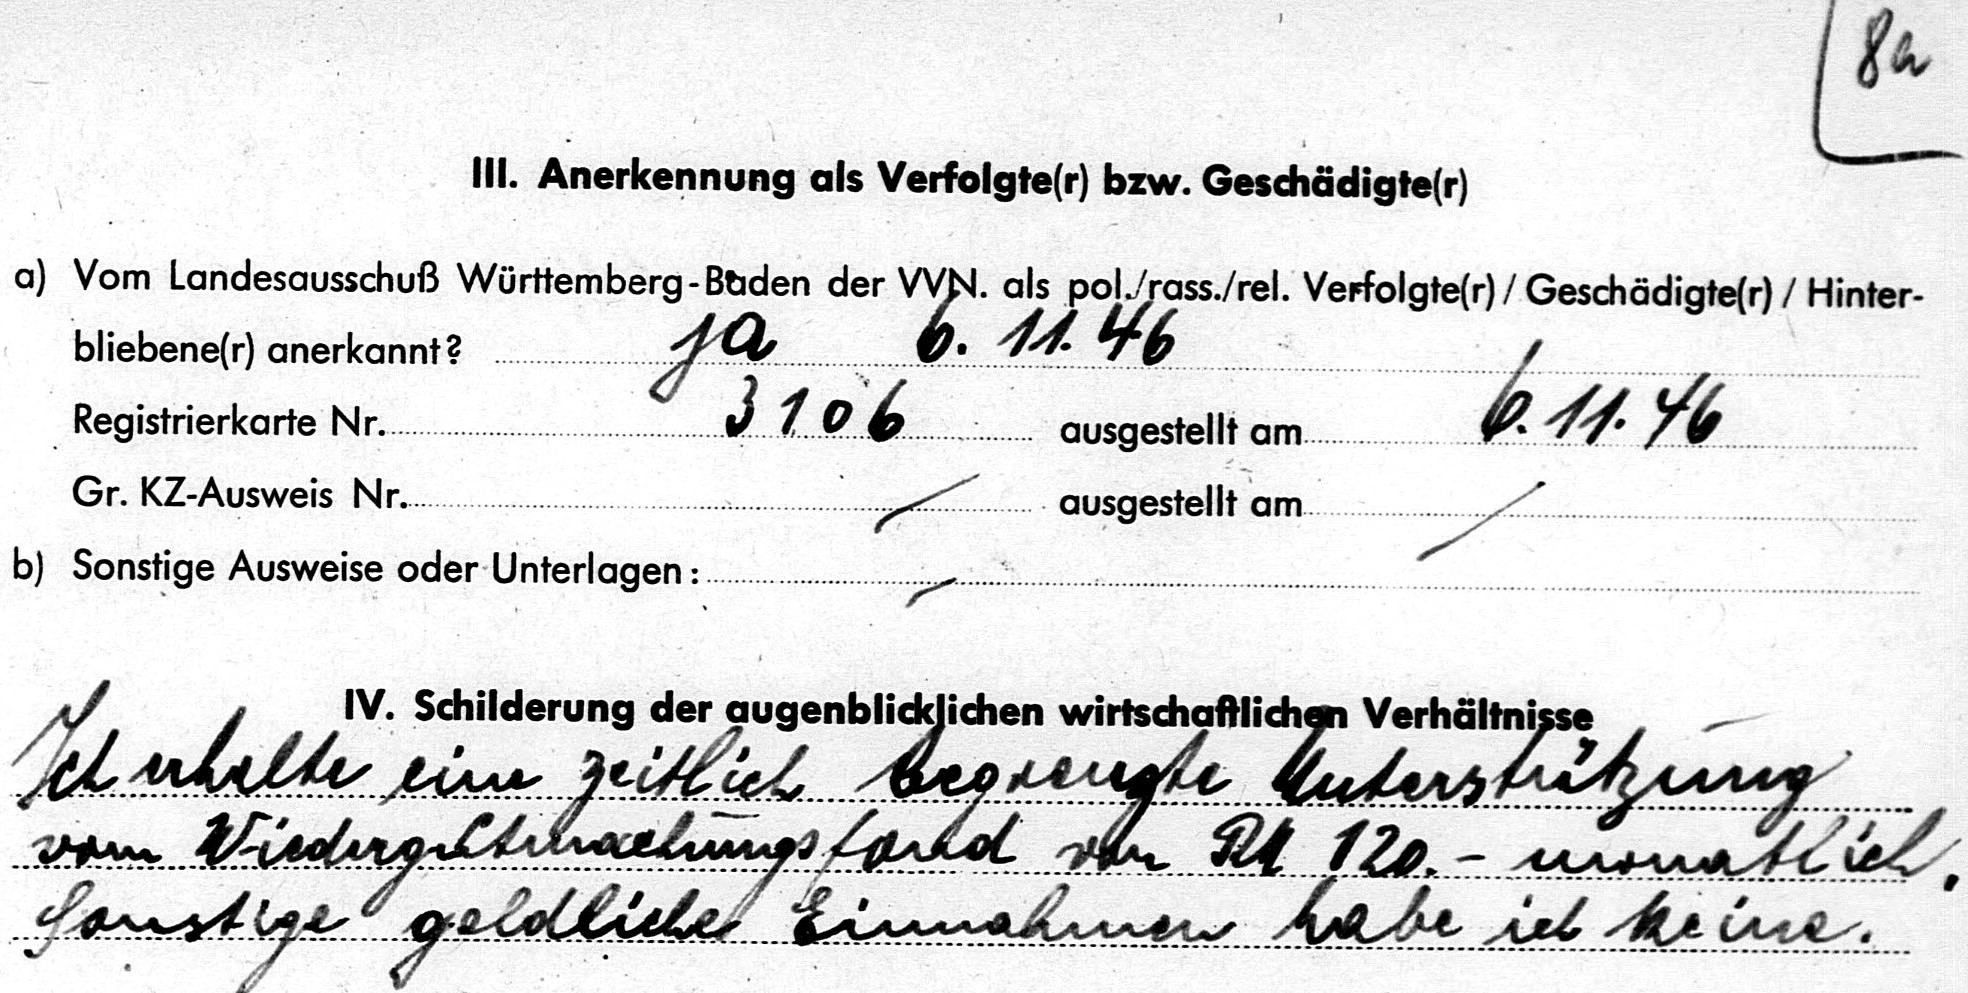 8a
III. Anerkennung als Verfolgte(r) bzw. Geschädigte(r)
a) Vom Landesausschuß Württemberg-Baden der VVN. als pol./rass./rel. Verfolgte(r) / Geschädigte(r) / Hinter-
bliebene(r) anerkannt? ja 6. 11. 46
Registrierkarte Nr. 3106 ausgestellt am 6. 11. 46
Gr. KZ-Ausweis Nr. / ausgestellt am /
b) Sonstige Ausweise oder Unterlagen: /
IV. Schilderung der augenblicklichen wirtschaftlichen Verhältnisse
Ich erhalte eine zeitlich begrenzte Unterstützung
vom Wiedergutmachungsfond von RM 120.- monatlich.
Sonstige geldliche Einnahmen habe ich keine.